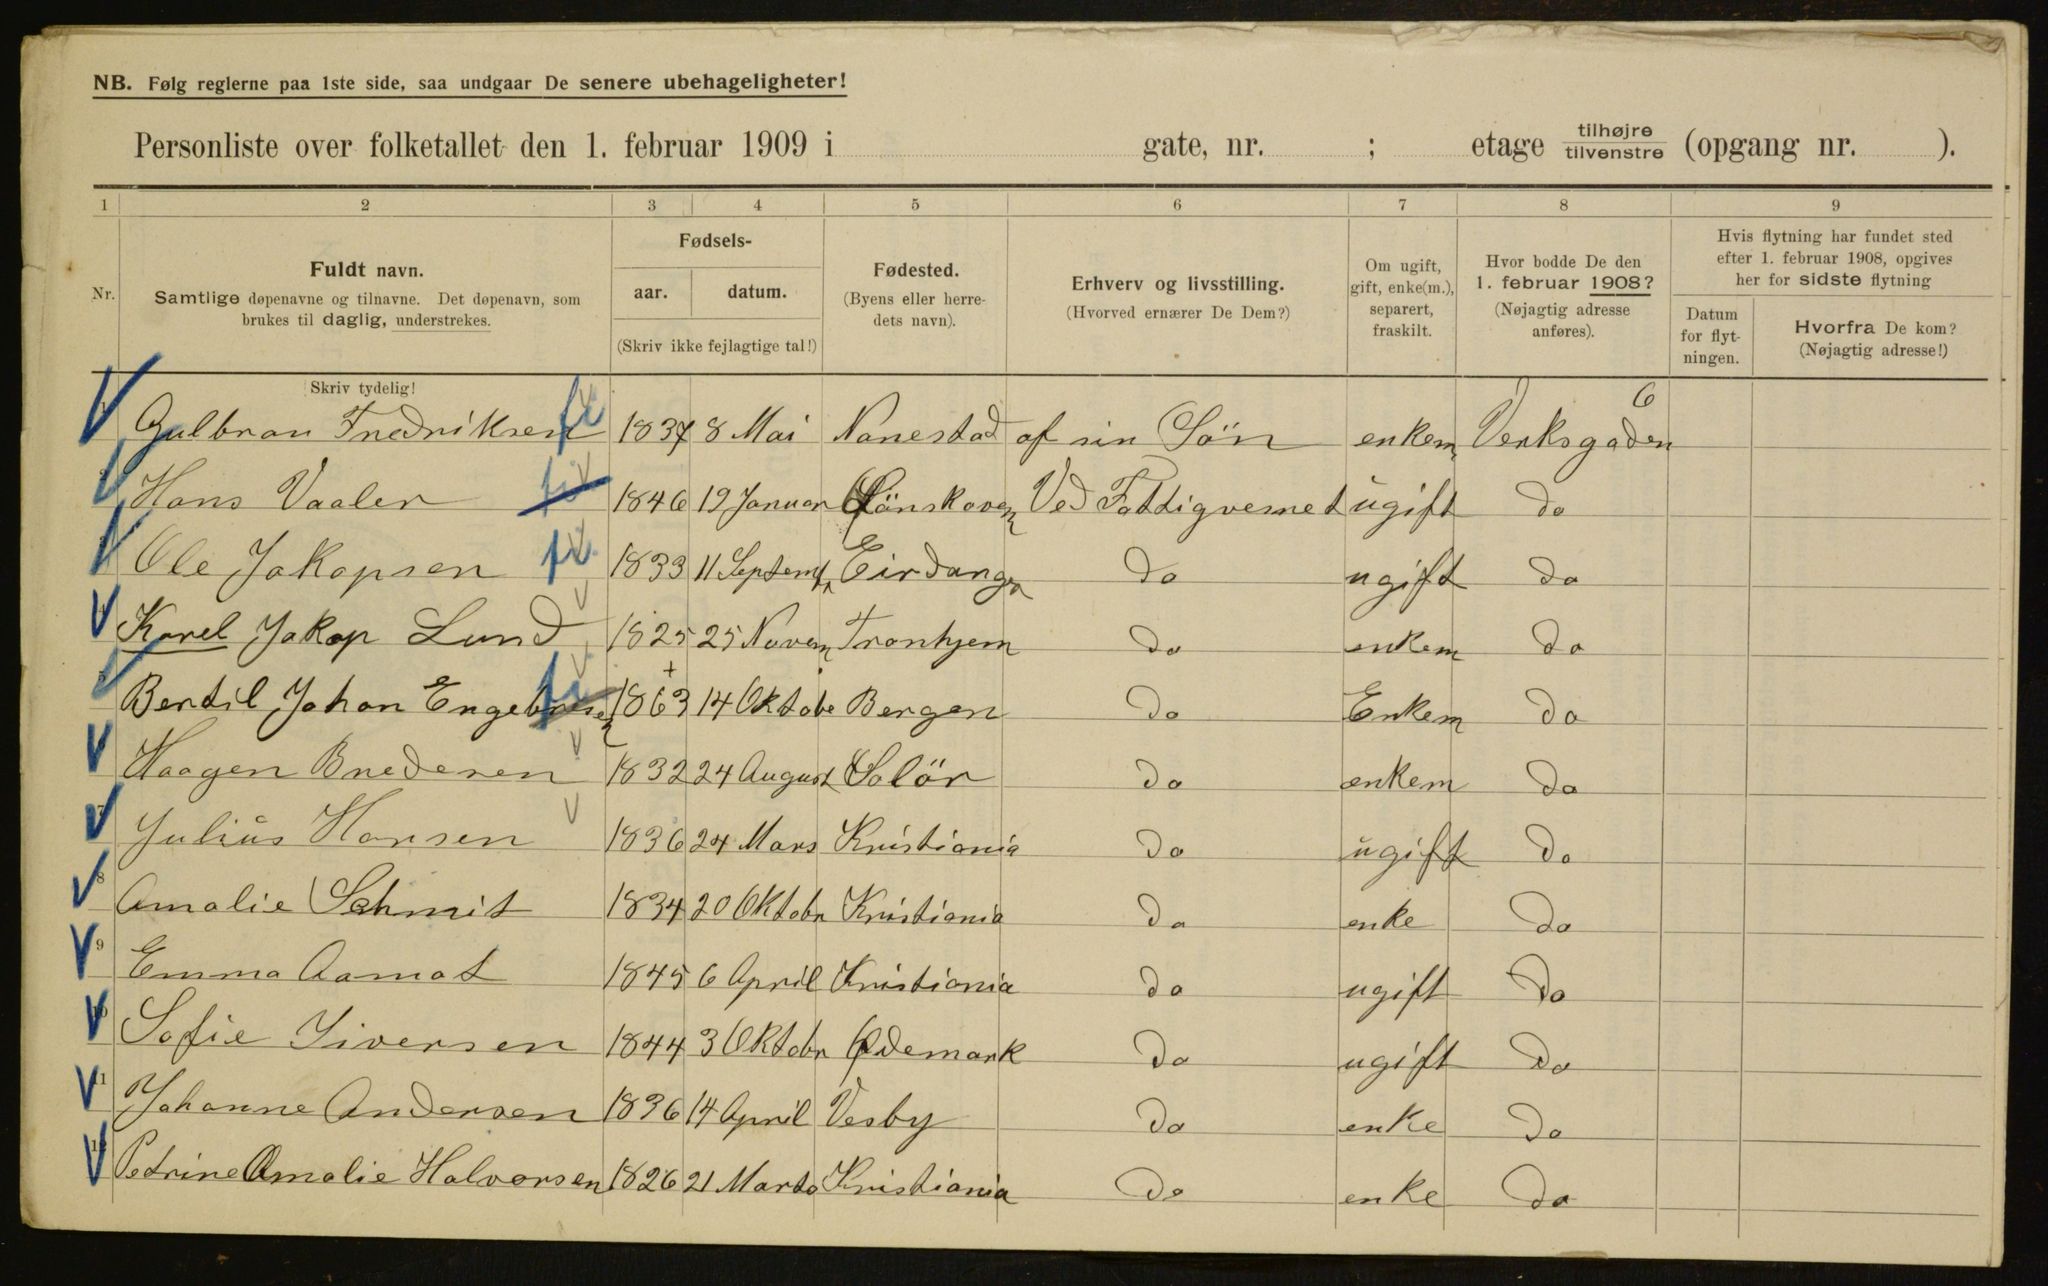 NB. Følg reglerne paa 1ste side, saa undgaar De senere ubehageligheter!
Personliste over folketallet den 1. februar 1909 i gate, nr. ; etage tilhøjre tilvenstre (opgang nr. ).
1 2 3 4 5 6 7 8 9
Nr.
Fuldt navn.
Samtlige døpenavne og tilnavne. Det døpenavn, som
brukes til daglig, understrekes.
Skriv tydelig!
Fødsels-
aar. datum.
(Skriv ikke fejlagtige tal!)
Fødested.
(Byens eller herre-
dets navn).
Erhverv og livsstilling.
(Hvorved ernærer De Dem?)
Om ugift,
gift, enke(m.),
separert,
fraskilt.
Hvor bodde De den
1. februar 1908?
(Nøjagtig adresse
anføres).
Hvis flytning har fundet sted
efter 1. februar 1908, opgives
her for sidste flytning
Datum
for flyt-
ningen.
Hvorfra De kom?
(Nøjagtig adresse!)
Gulbran Fredriksen fi 1837 8 Mai Nanestad af sin Sön enkem Verksgaden 6
Hans Vaaler 1846 19 Januar Ved Fattigvesnet ugift do
Ole Jakopsen fi 1833 11 Septembr Eirdanger do ugift do
Karel Jakop Lund 1825 25 Novem Tronhjem do enkem do
Bertil Johan Engebresen fi 1863 14 Oktobe Bergen do Enkem do
Haagen Bredesen 1832 24 August Solör do enkem do
7 Julius Hansen 1836 24 Mars Kristiania do ugift do
8 Amalie Schmit 1834 20 Oktobr Kristiania do enke do
9 Emma Aamot 1845 6 April Kristiania do ugift do
10 Sofie Siversen 1844 3 Oktobr Ødemark do ugift do
11 Johanne Andersen 1836 14 April Vesby do enke do
12 Petrine Amalie Halvorsen 1826 21 Marts Kristiania do enke do